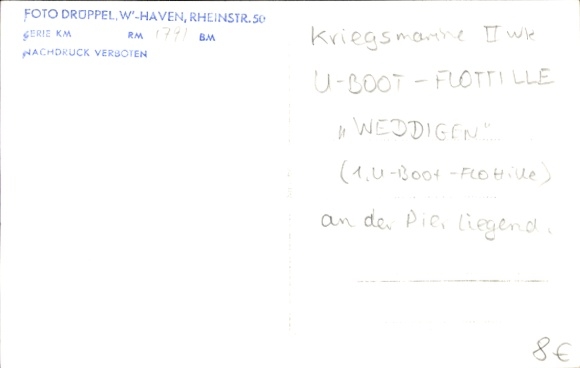 FOTO DRÜPPEL, W'-HAVEN, RHEINSTR. 50
SERIE KM RM 1791 BM
NACHDRUCK VERBOTEN
Kriegsmarine II Wk
U-BOOT-FLOTTILLE
„WEDDIGEN"
(1. U-Boot-Flottille)
an der Pier liegend.
8 €